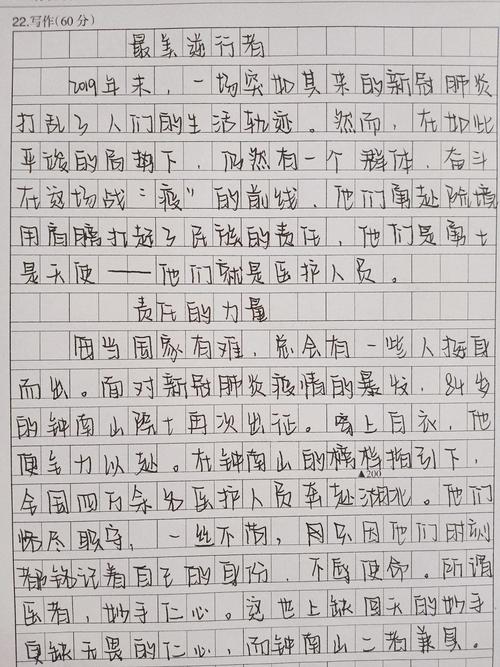 22.写作(60分)
最美逆行者
2019年末，一场突如其来的新冠肺炎
打乱了人们的生活轨迹。然而，在如此
严峻的局势下，仍然有一个群体，奋斗
在这场战“疫”的前线，他们勇赴险境
用肩膀扛起了民族的责任，他们是勇士
是天使——他们就是医护人员。
责任的力量
每当国家有难，总会有一些人挺身
而出。面对新冠肺炎疫情的暴发，84岁
的钟南山院士再次出征。穿上白衣，他
便全力以赴。在钟南山的榜样指引下，
▲200
全国四万余名医护人员奔赴湖北。他们
恪尽职守，一丝不苟，只因他们时刻
都铭记着自己的身份，不辱使命。所谓
医者，妙手仁心。这世上缺回天的妙手
更缺无畏的仁心，而钟南山二者兼具。